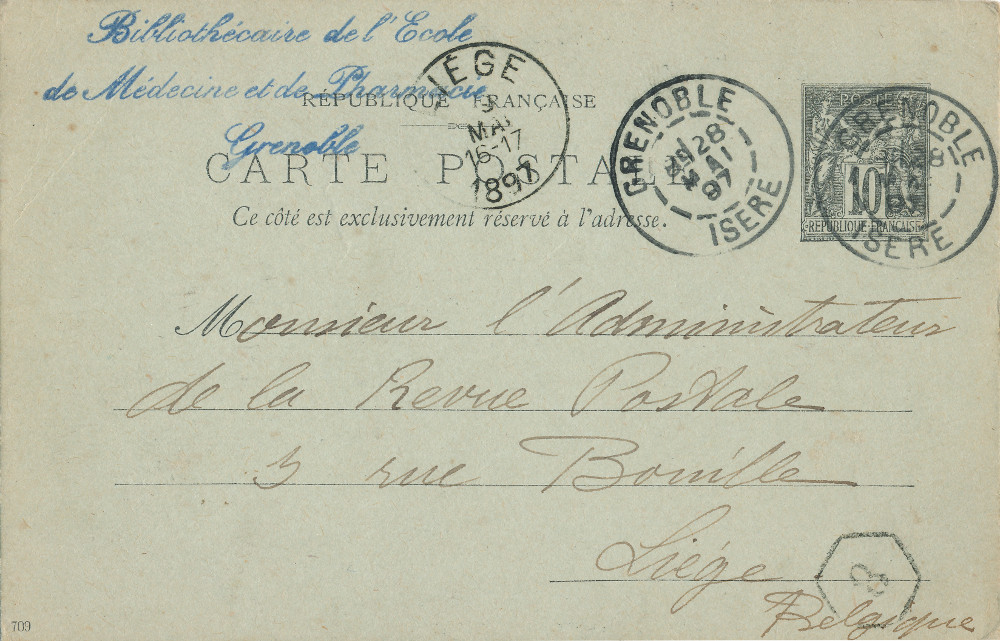 Bibliothécaire de l'Ecole
de Médecine et de Pharmacie
Grenoble
RÉPUBLIQUE FRANÇAISE
CARTE POSTALE
Ce côté est exclusivement réservé à l'adresse.
LIÉGE
3
MAI
16-17
1897
GRENOBLE
28
MAI
97
ISERE
POSTES
10
REPUBLIQUE FRANCAISE
GRENOBLE
ISERE
Monsieur l'Administrateur
de la Revue Postale
rue Bouille
Liége
Belgique
709